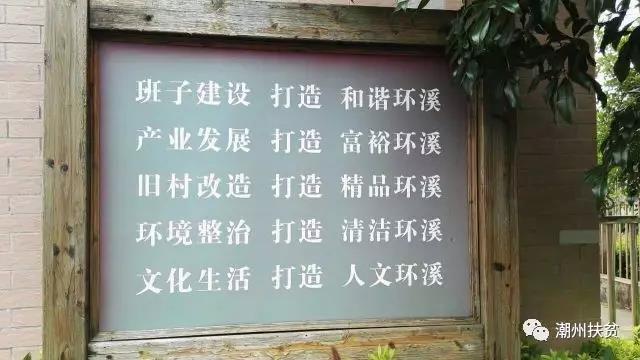 班子建设 打造 和谐环溪
产业发展 打造 富裕环溪
旧村改造 打造 精品环溪
环境整治 打造 清洁环溪
文化生活 打造 人文环溪
潮州扶贫